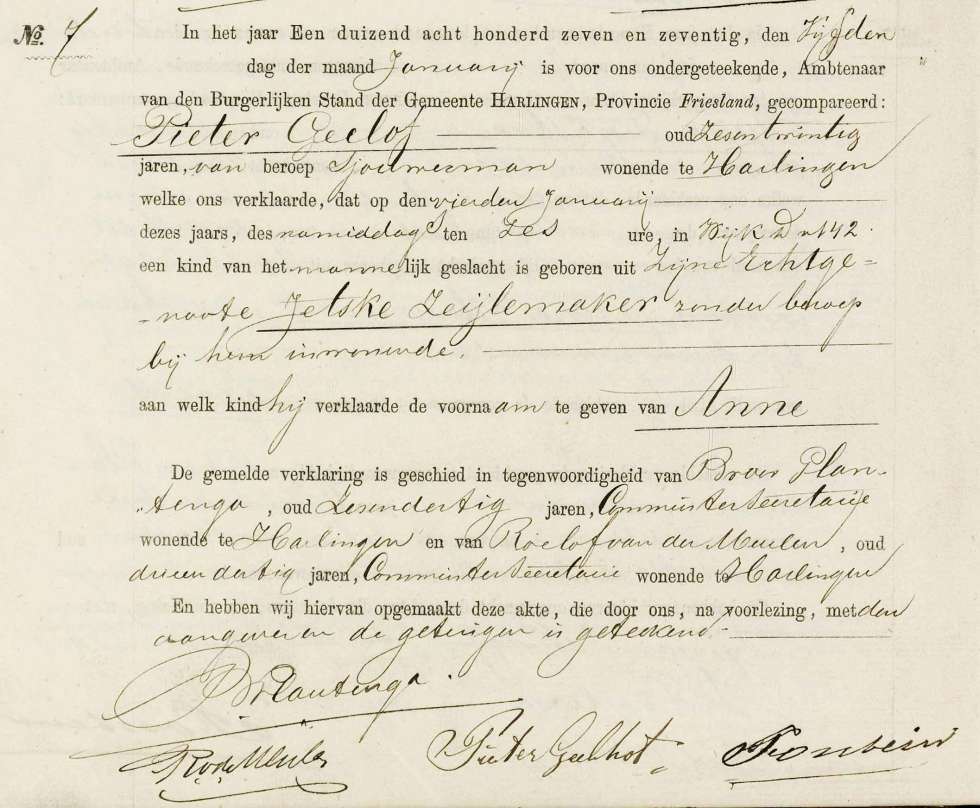 No. 7 In het jaar Een duizend acht honderd zeven en zeventig, den Vijfden
dag der maand Januarij is voor ons ondergeteekende, Ambtenaar
van den Burgerlijken Stand der Gemeente HARLINGEN, Provincie Friesland, gecompareerd:
Pieter Geelof oud Zesentwintig
jaren, van beroep Sjouwerman wonende te Harlingen
welke ons verklaarde, dat op den vierden Januarij
dezes jaars, des namiddags ten Zes ure, in Wijk D n 142
een kind van het mannelijk geslacht is geboren uit Zijne Echtge=
=noote Jetske Zeijlemaker zonder beroep
bij hem inwonende.
aan welk kind hij verklaarde de voornaam te geven van Anne
De gemelde verklaring is geschied in tegenwoordigheid van Broer Plan-
tenga, oud Zesendertig jaren, Commies ter Secretarie
wonende te Harlingen en van Roelof van der Meulen, oud
drieendertig jaren, Commies ter Secretarie wonende te Harlingen
En hebben wij hiervan opgemaakt deze akte, die door ons, na voorlezing, met den
aangever en de getuigen is geteekend.
BrPlantenga.
RvdMeulen
Pieter Geelhof
Fontein